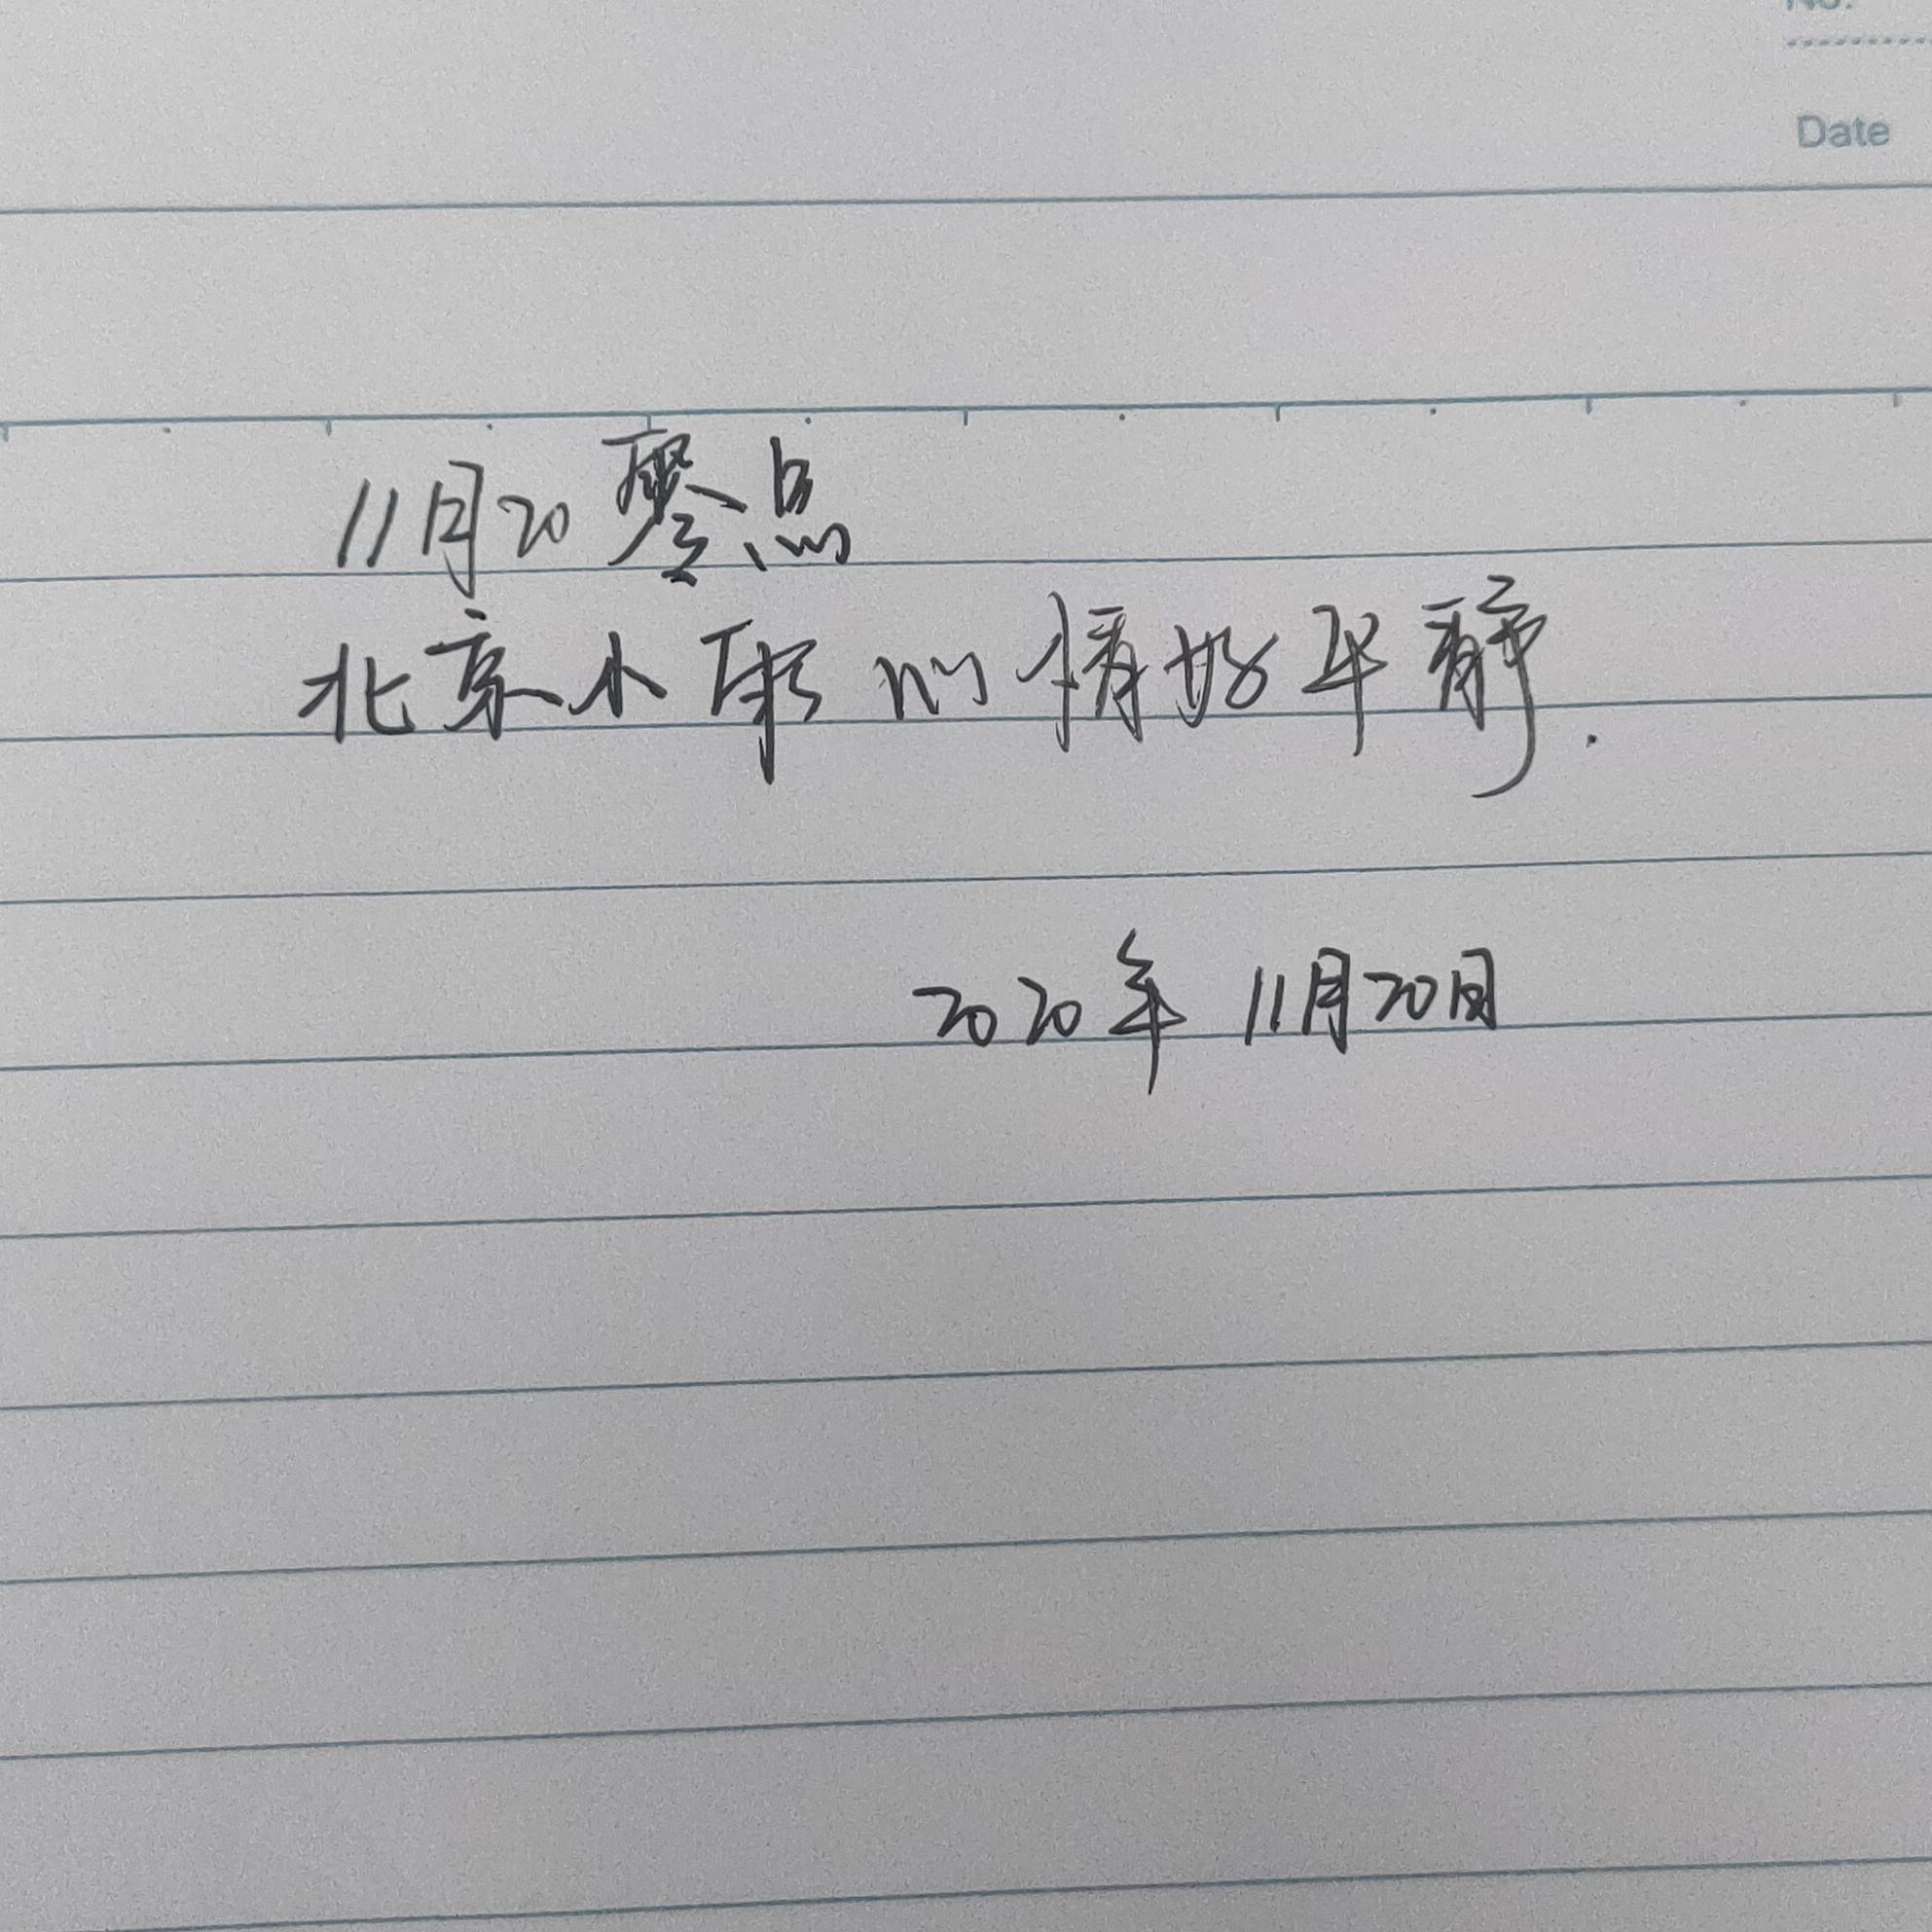 Date
11月20 零点
北京小雨 心情好平静.
2020年 11月20日